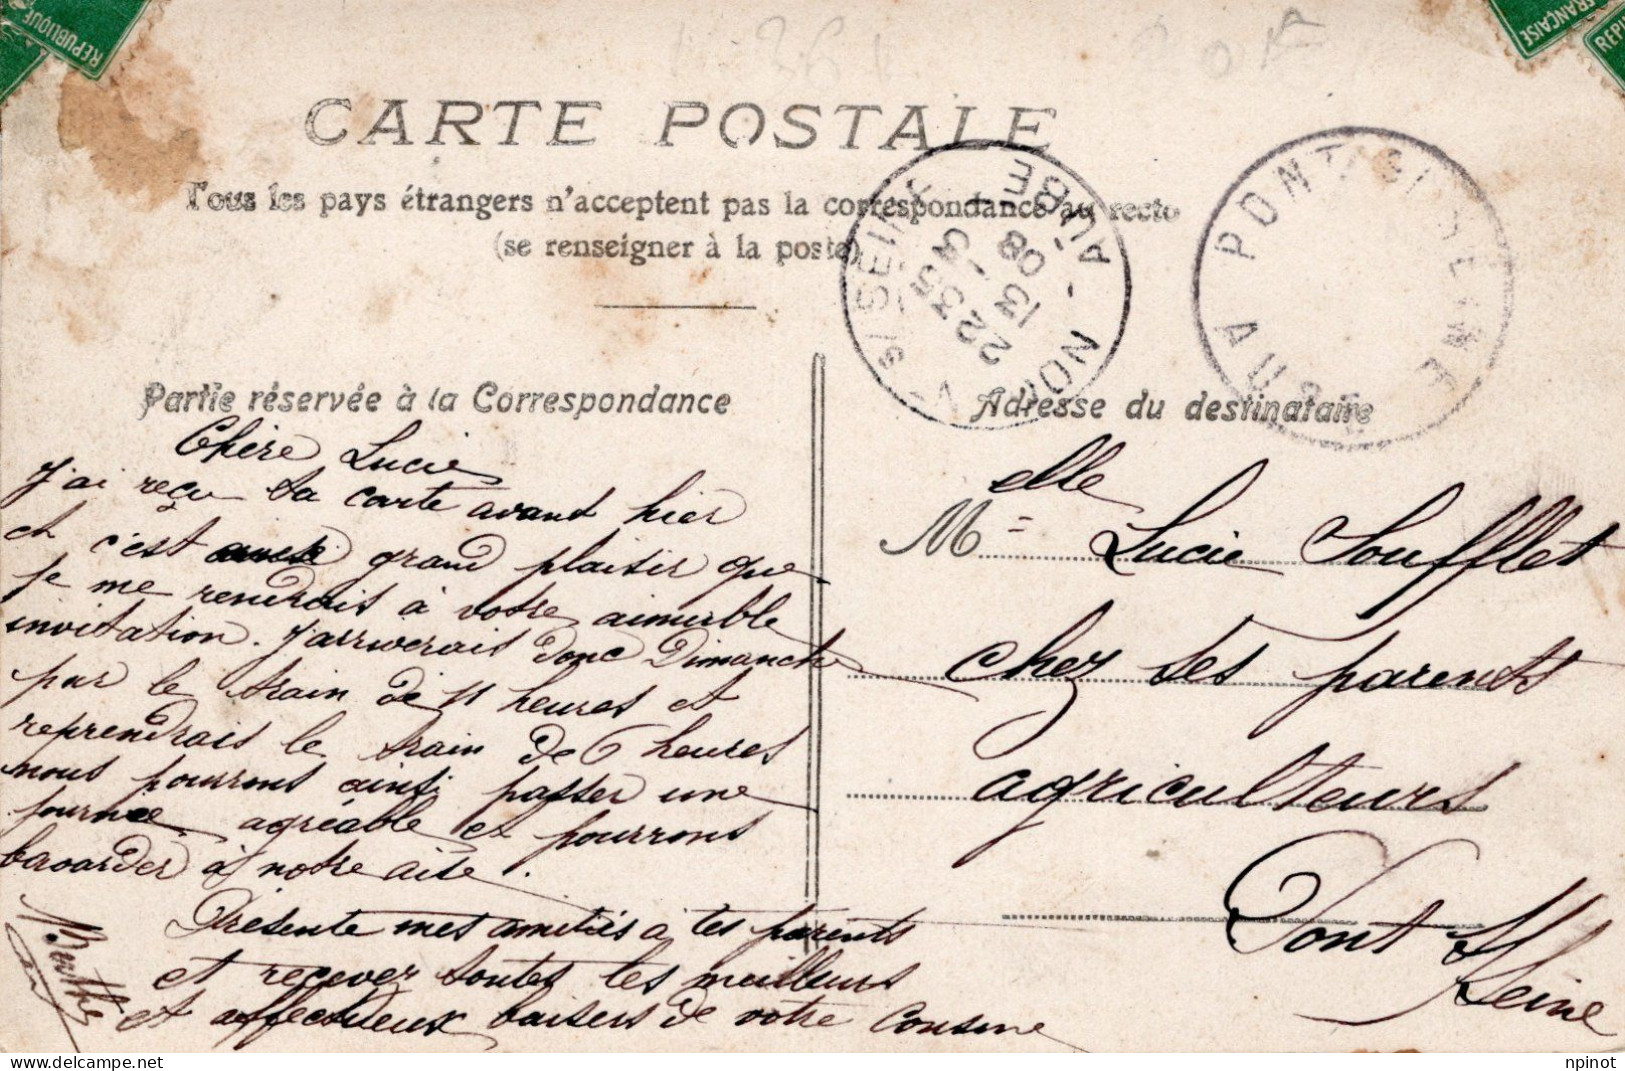 REPUBLIQUE
FRANÇAISE
REPU
CARTE POSTALE
Tous les pays étrangers n'acceptent pas la correspondance au recto
(se renseigner à la poste)
PONT S/ SEINE
AUBE
NOGENT S/ SEINE
Partie réservée à la Correspondance
Adresse du destinataire
Chère Lucie
J'ai reçu ta carte avant hier
et c'est avec grand plaisir que
je me rendrais à votre aimable
invitation. J'arriverais donc Dimanche
par le train de 11 heures et
reprendrais le train de 6 heures
nous pourrons ainsi passer une
journée agréable et pourrons
bavarder à notre aise.
Présente mes amitiés à tes parents
et recever toutes les meilleurs
et affectueux baisers de votre cousine
Berthe
Melle Lucie Soufflet
chez ses parents
agriculteurs
Pont s/Seine
npinot